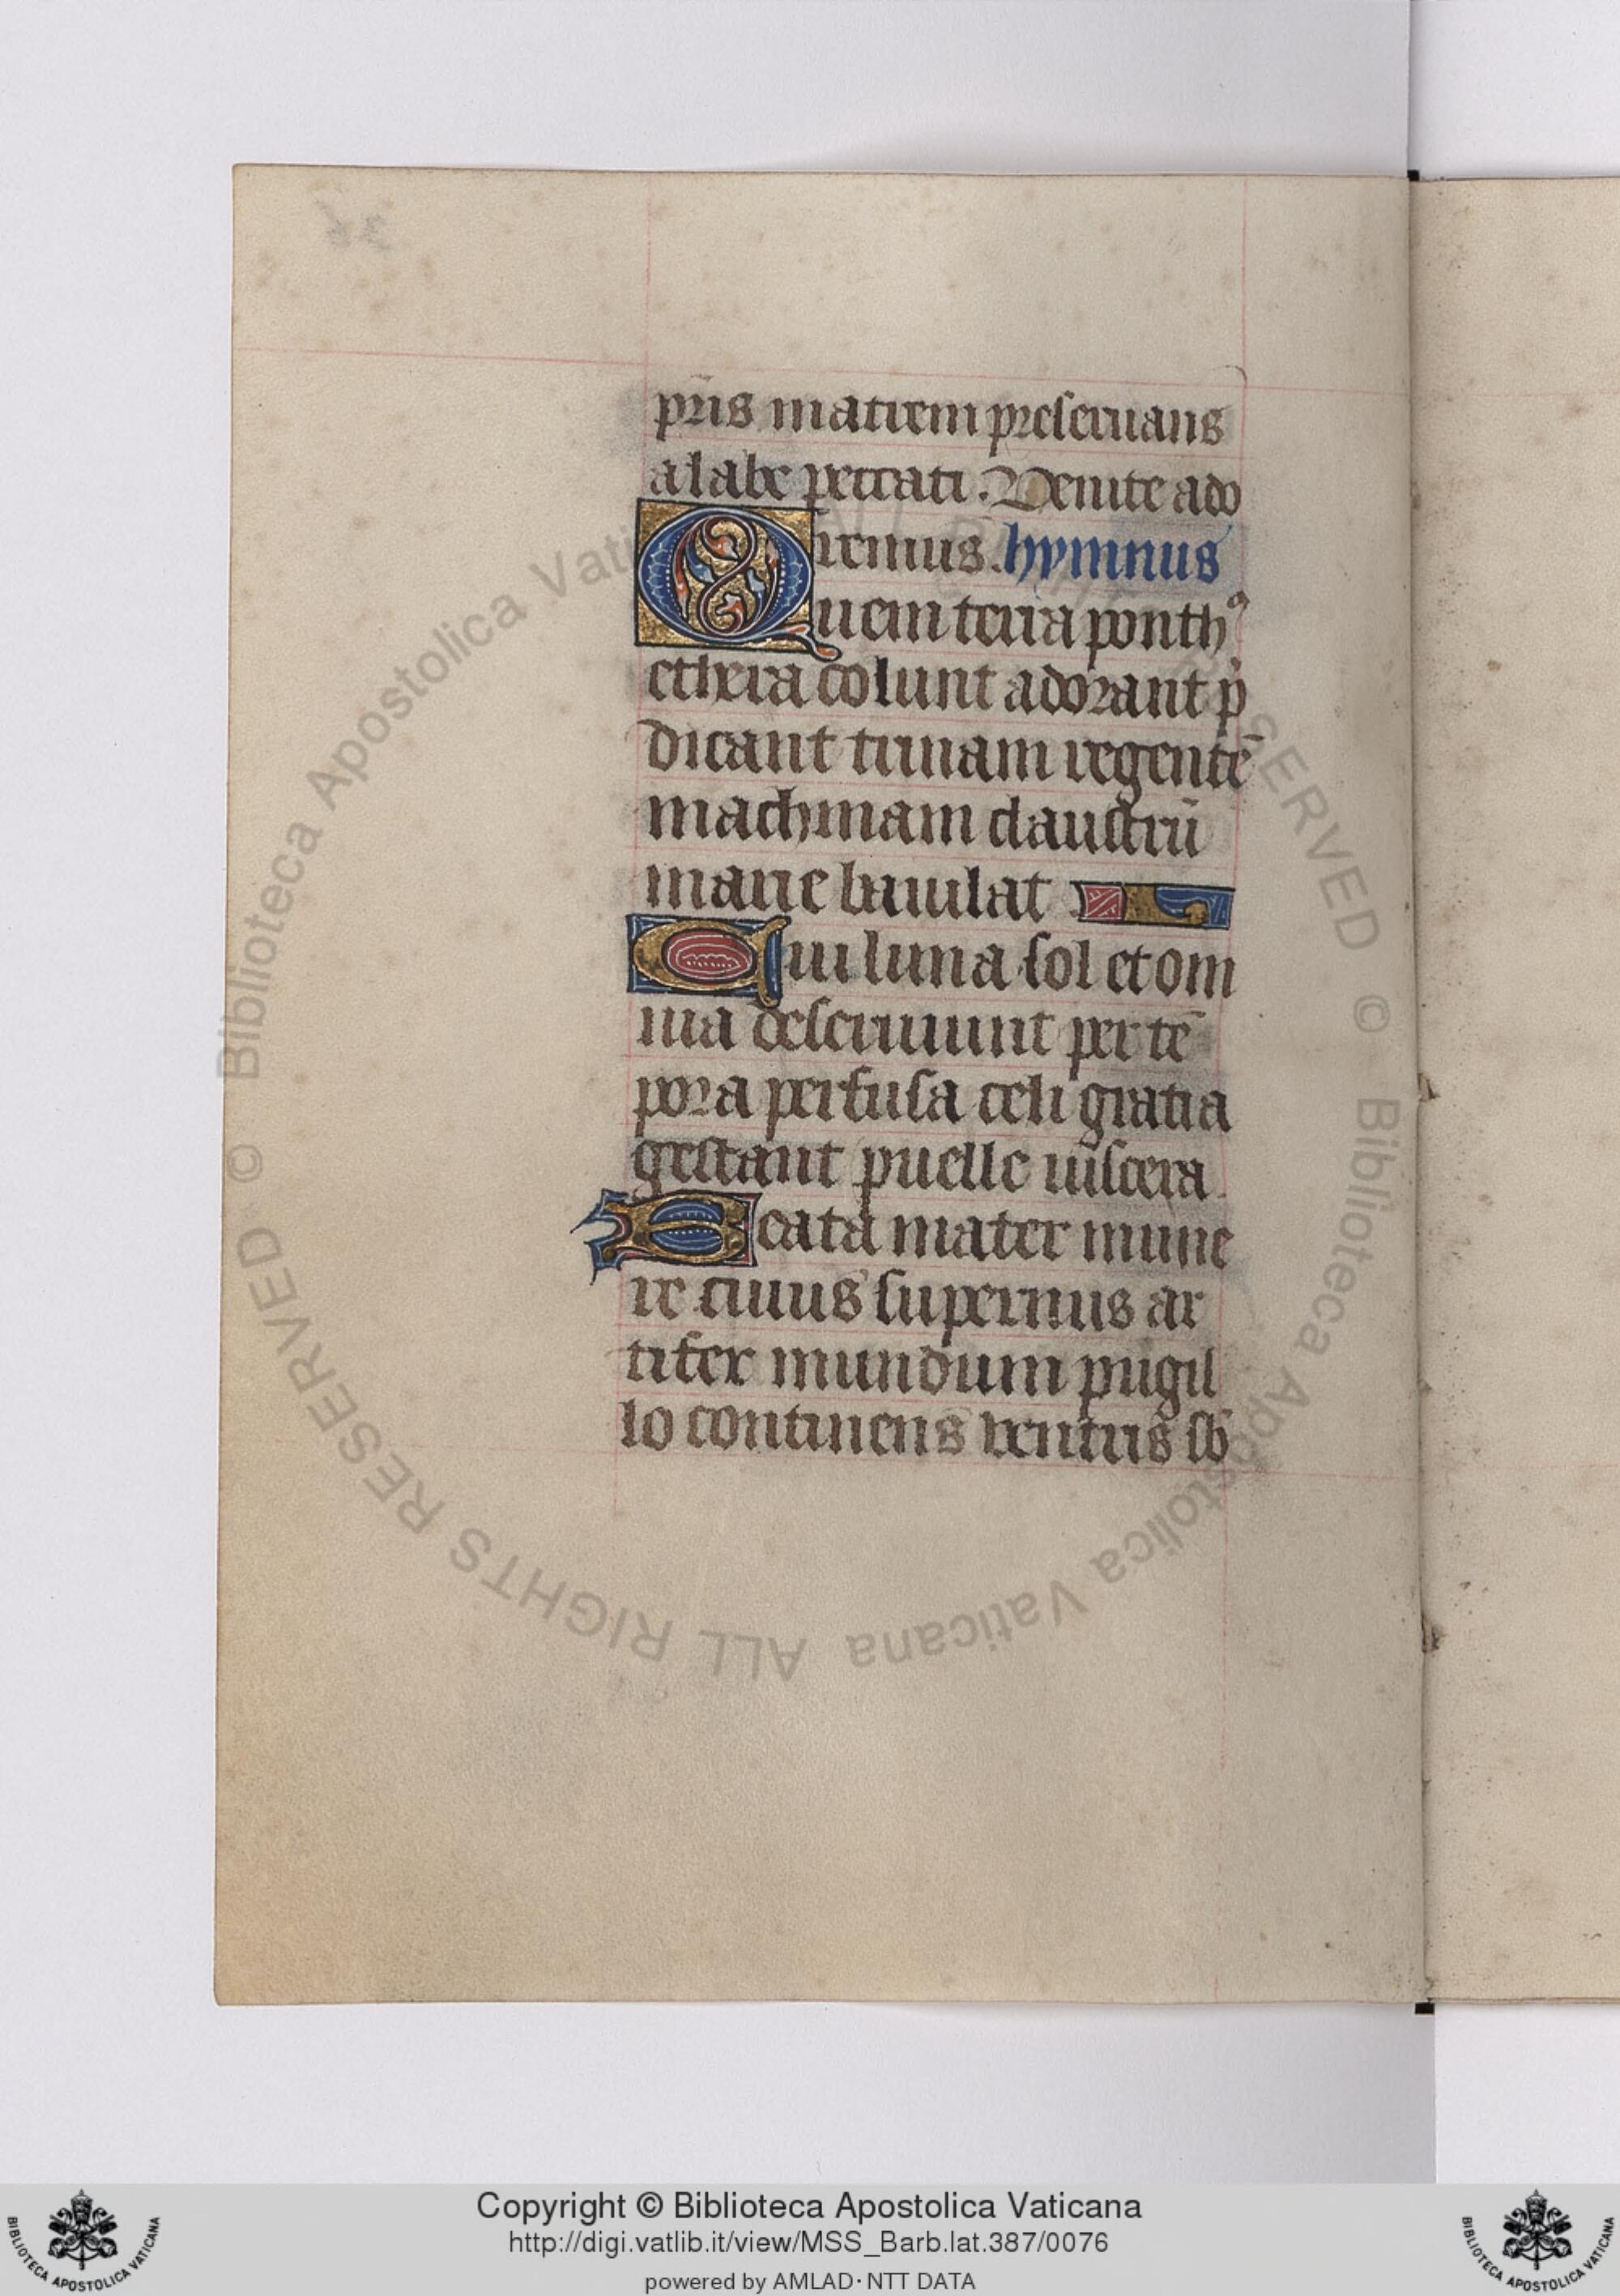 pr̄is matrem preseruans
a labe peccati. Venite ado
remus. hymnus
Quem terra ponthꝰ
ethera colunt adorant p̄
dicant trinam regentē
machinam claustrū
marie baiulat
Cui luna sol et om
nia deseruiunt per tē
pora perfusa celi gratia
gestant puelle uiscera.
Beata mater mune
re cuius supernus ar
tifex mundum pugil
lo continens uentris sb̄
© Biblioteca Apostolica Vaticana ALL RIGHTS RESERVED © Biblioteca Apostolica Vaticana ALL RIGHTS RESERVED
Copyright © Biblioteca Apostolica Vaticana
http://digi.vatlib.it/view/MSS_Barb.lat.387/0076
powered by AMLAD·NTT DATA
BIBLIOTECA APOSTOLICA VATICANA
BIBLIOTECA APOSTOLICA VATICANA